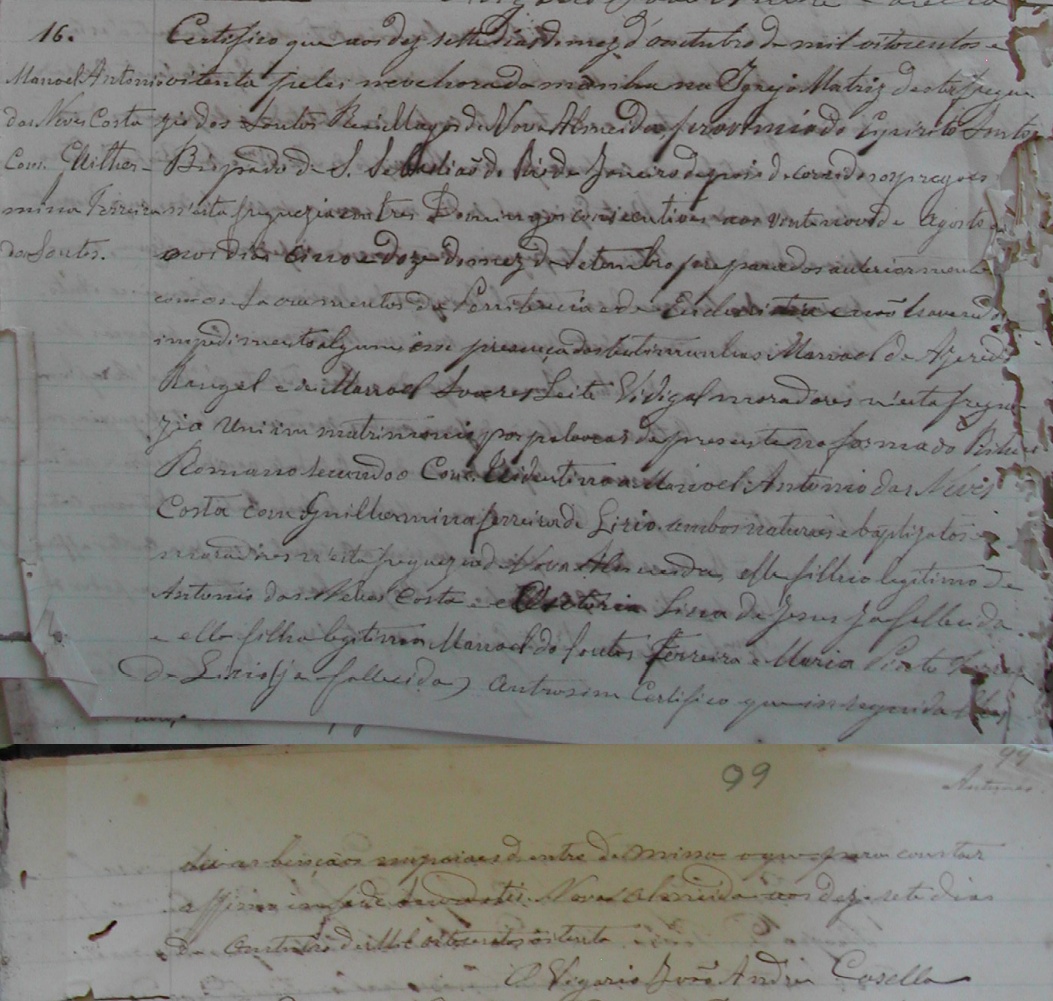 16.
Manoel Antonio
das Neves Costa
Com Guilher-
mina Ferreira
dos Santos.
Certifico que aos dez sette dias do mez d'outubro de mil oitocentos e
oitenta pelas nove horas da manha na Igreja Matriz desta fregue
zia dos Santos Reis Magos de Nova Almeida provincia do Espirito Santo
Bispado de S. Sebastião do Rio de Janeiro depois de corridos os pregoes
n'esta freguezia em tres Domingos consecutivos aos vinte nove de Agosto
aos dias cinco e doze do mez de Setembro preparados anteriormente
com os Sacramentos da Penitencia e da Eucharistia e não havendo
impedimento algum em presença das testimunhas Manoel de Azeredo
Rangel e de Manoel Soares Leite Vidigal moradores n'esta fregue
zia Uni em matrimonio por palavras de presente na forma do Ritual
Romano segundo o Conc. Tridentino a Manoel Antonio das Neves
Costa com Guilhermina Ferreira de Lirio ambos naturaes e baptizatos
moradores n'esta freguezia de Nova Almeida, elle filho legitimo de
Antonio das Neves Costa e Lina de Jesus ja fallecida
e ella filha legitima Manoel dos Santos Ferreira e Maria Pinto
de Lirio (ja fallecida) Outrosim Certifico que in seguida
99
99
Antunes
dei as bençãos nupciaes dentro da missa o que para constar
assino in fede Nova Almeida aos dez sete dias
de Outubro de Mil oitocentos oitenta
O Vigario João Andre Casella